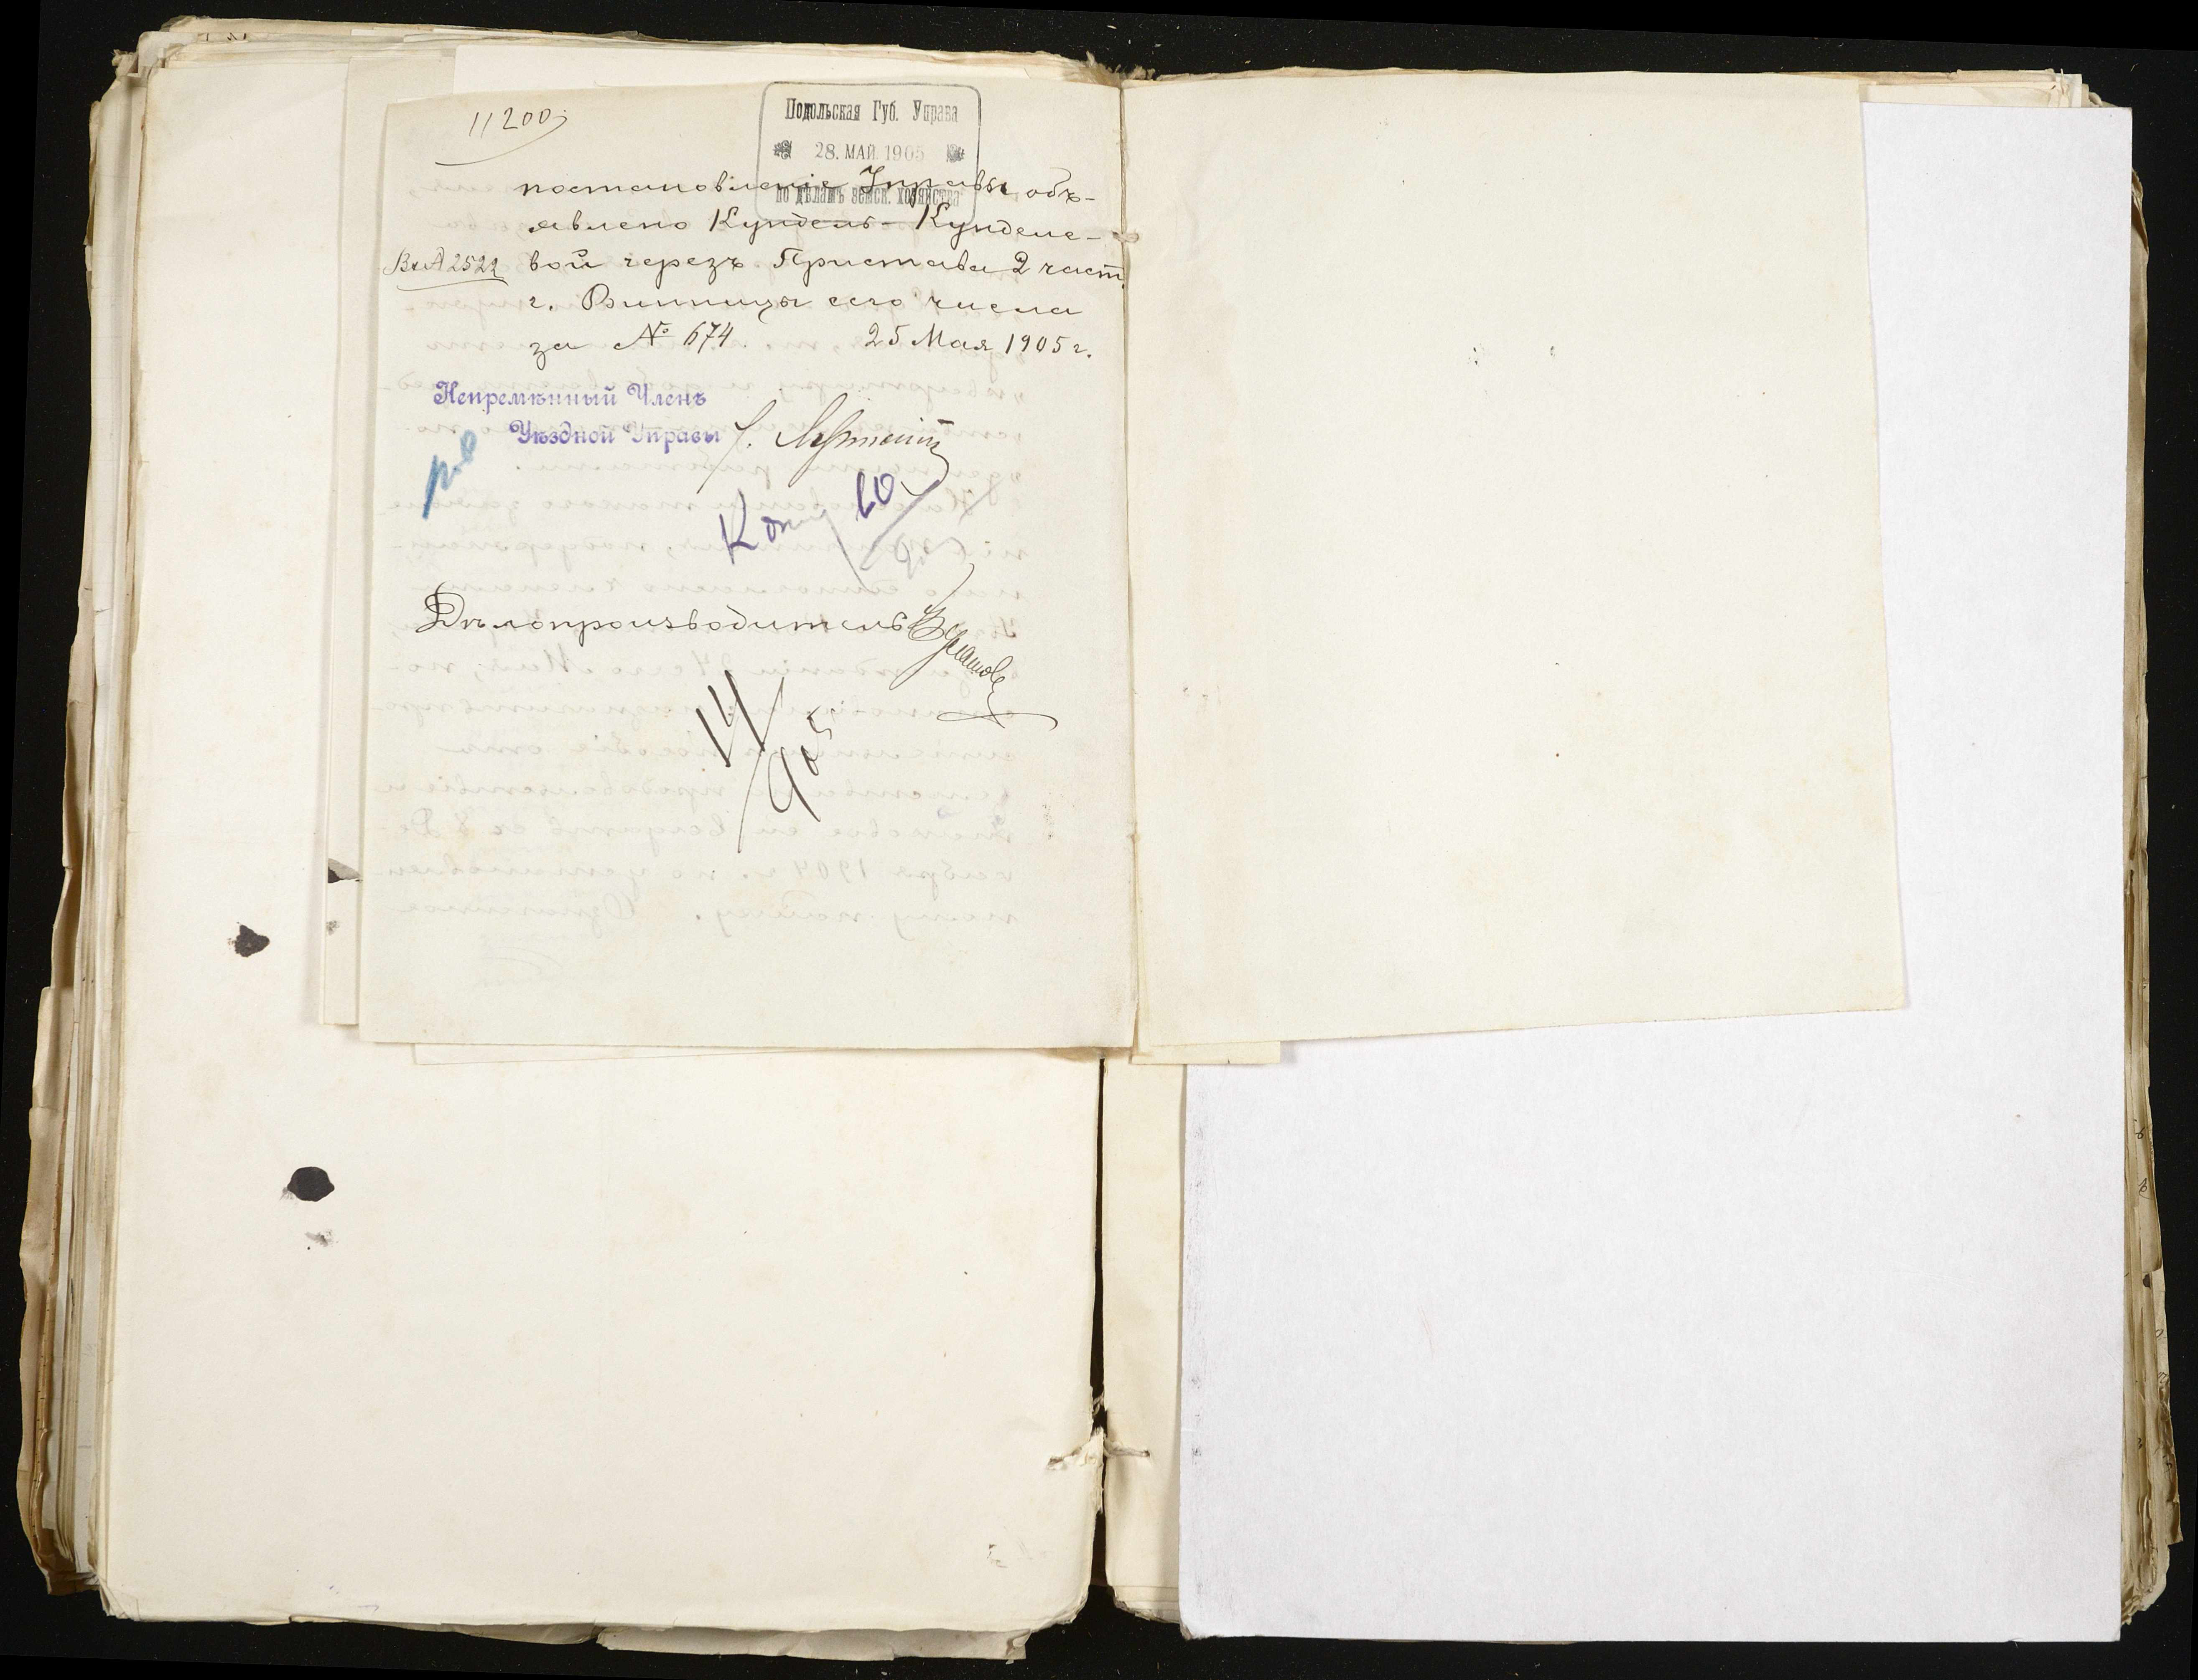 11200
Подольская Губ. Управа
28. МАЙ. 1905
по дѣламъ земск. хозяйства
постановленіе Управы объ-
явлено Кундель-Кунделе-
Вх№ 2522 вой черезъ Пристава 2 част.
г. Винницы сего числа
за № 674. 25 Мая 1905 г.
Непремѣнный Членъ
Уѣздной Управы
Дѣлопроизводитель
14/905